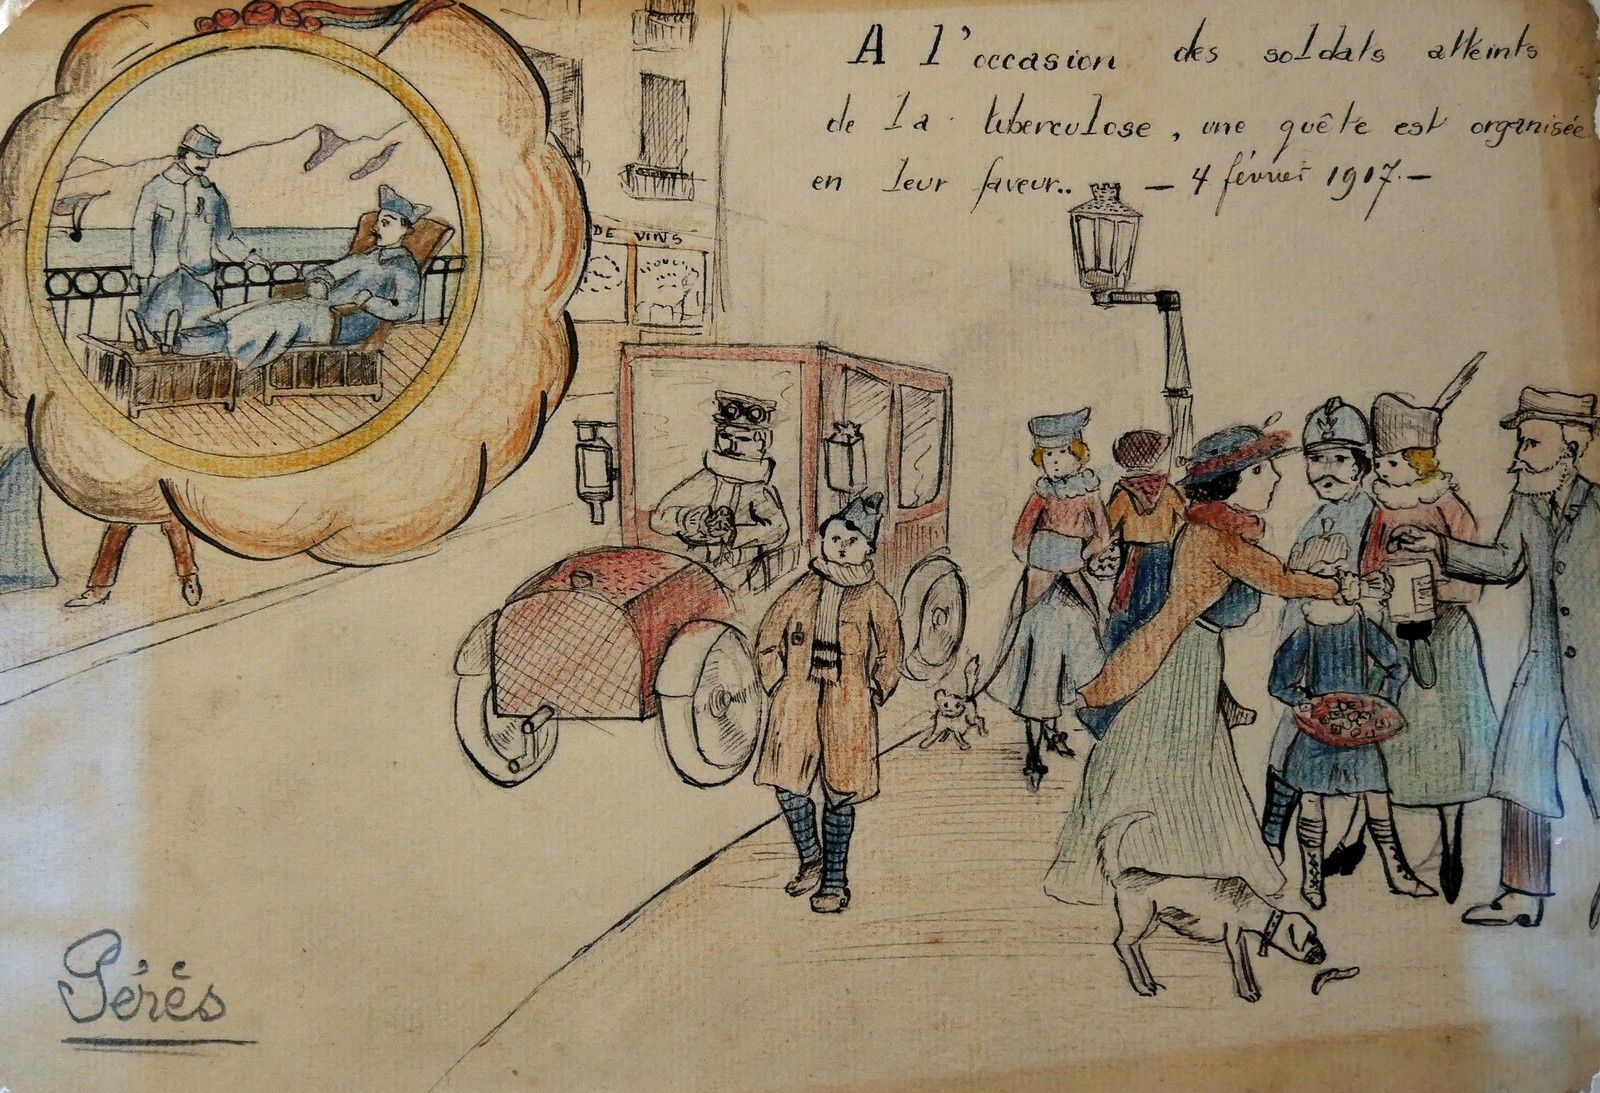 A l'occasion des soldats attéints
de la tuberculose, une quête est organisée
en leur faveur.. — 4 février 1917.—
DE VINS
Pérés